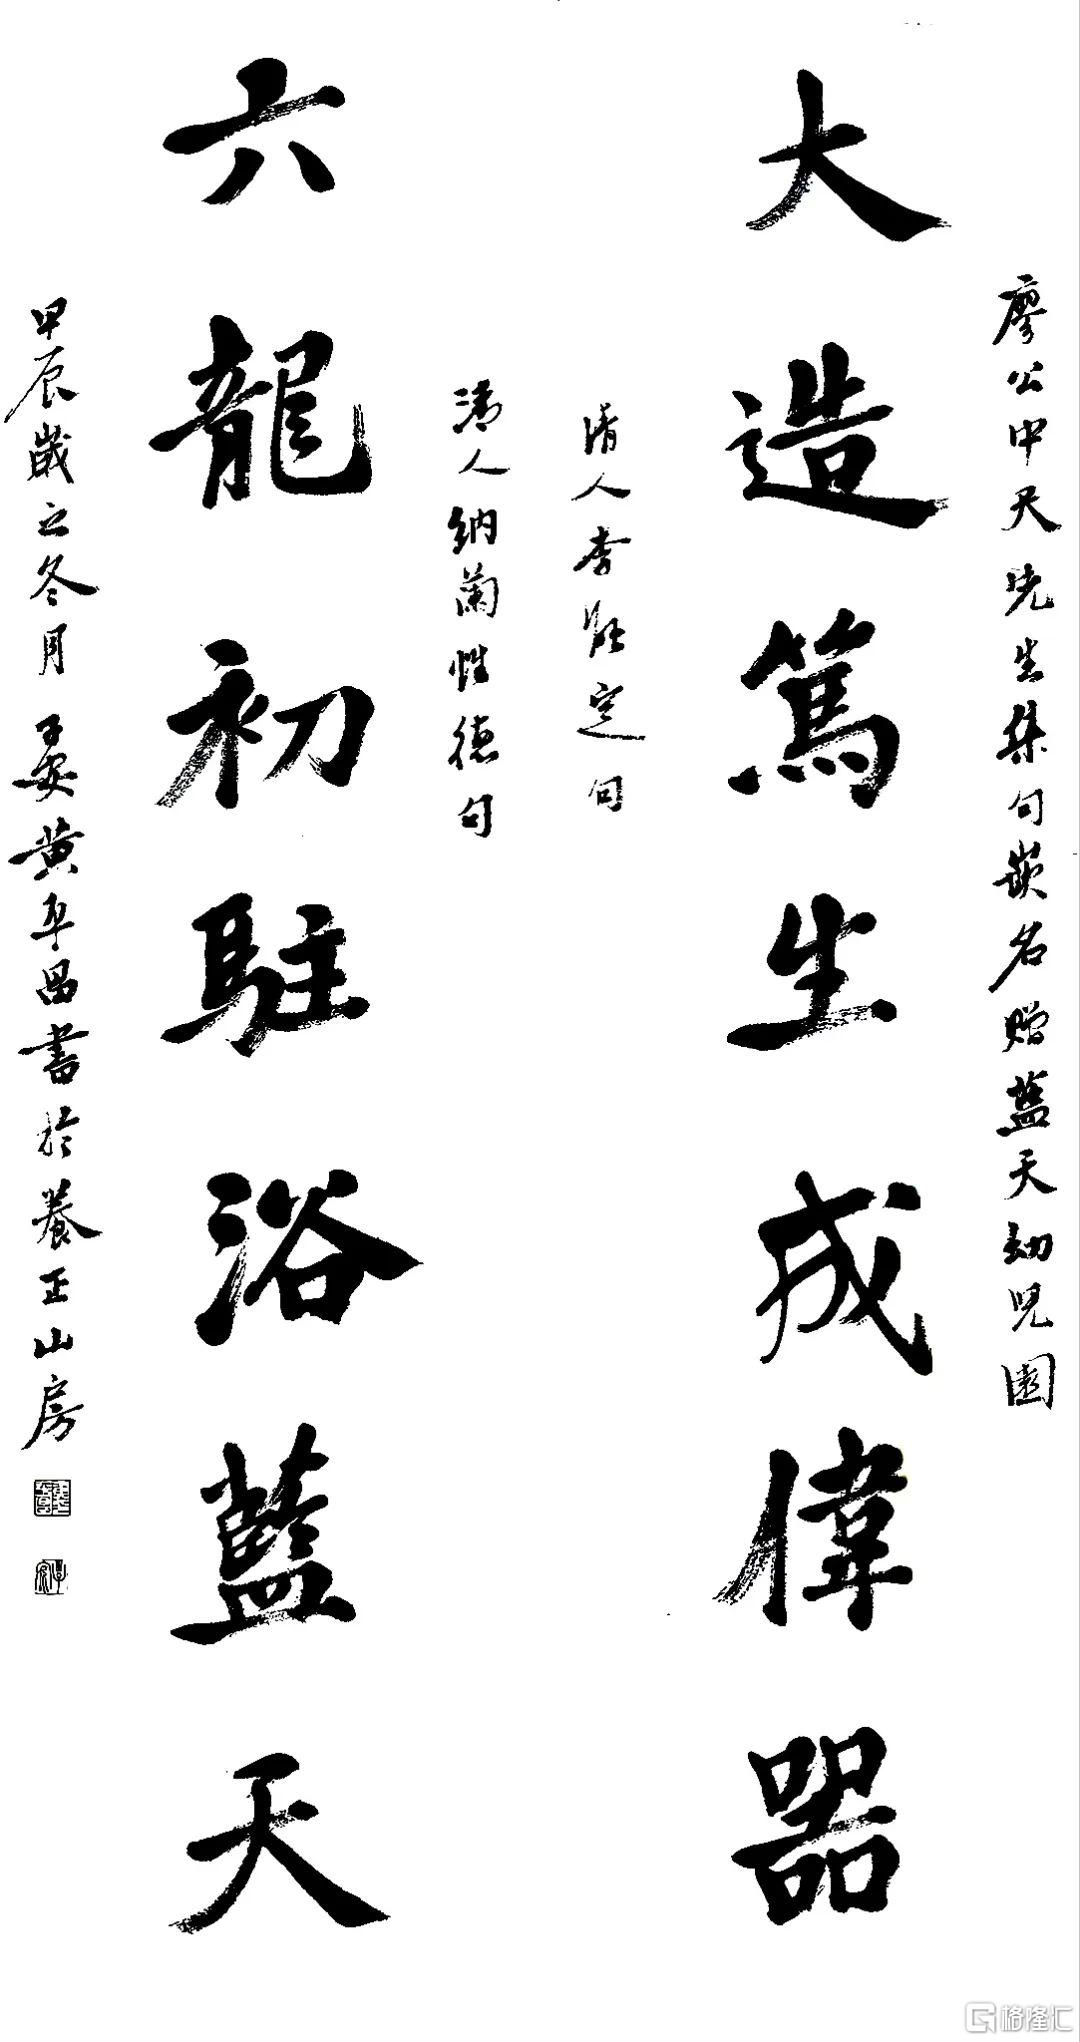 廖公中天先生集句嵌名贈藍天幼兒園
大造篤生成偉器
清人李定句
清人納蘭性德句
六龍初駐浴藍天
甲辰歲之冬月子安黃昌書於養正山房
格隆汇